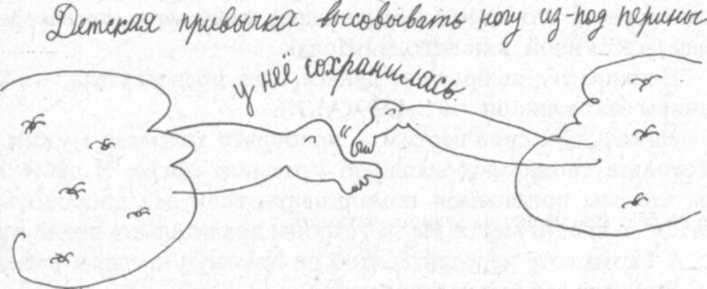 Детская привычка высовывать ногу из-под перины
у неё сохранилась